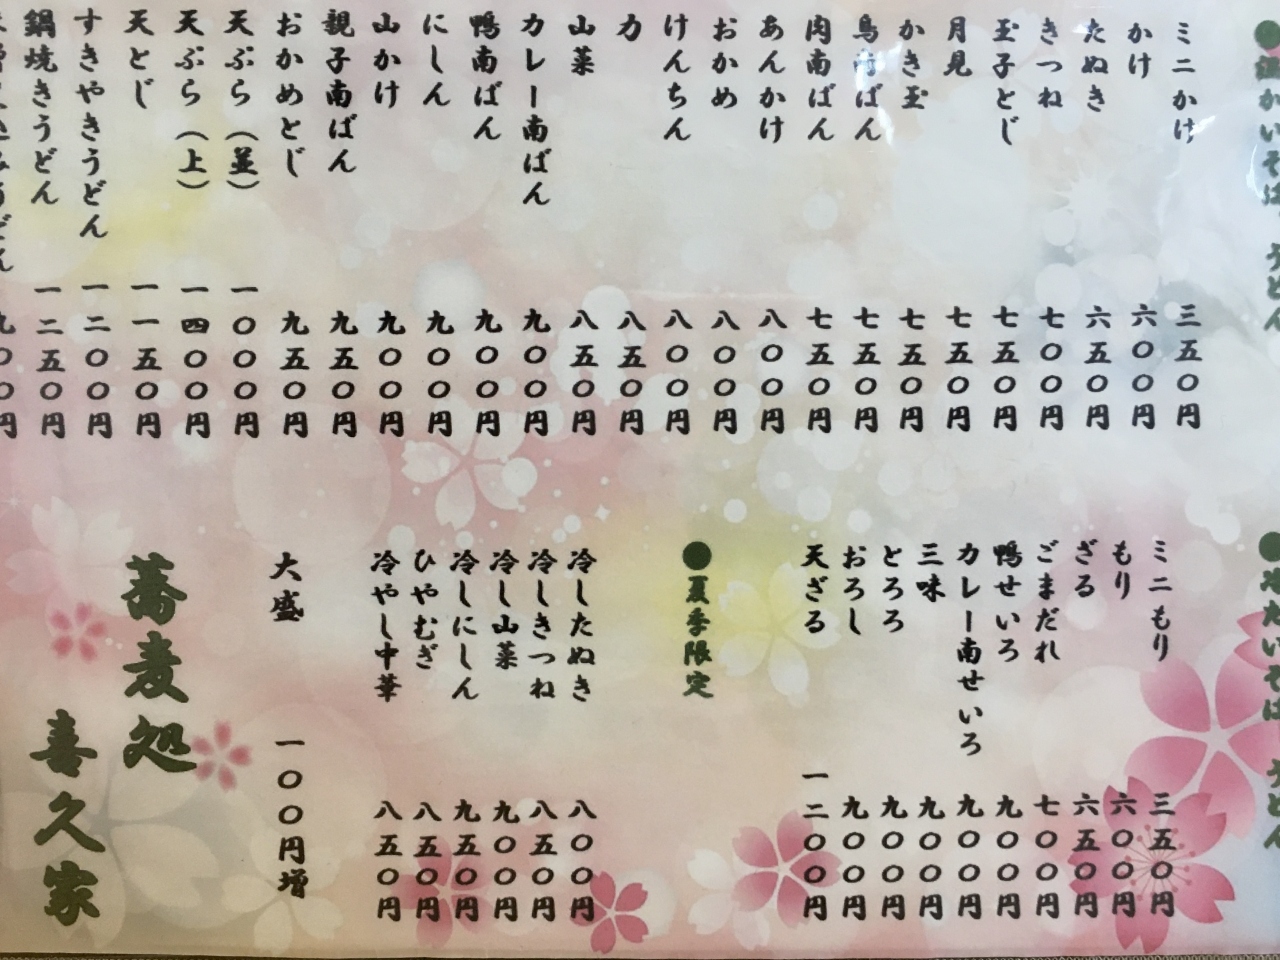 ●温かいそば・うどん
ミニかけ 三五〇円
かけ 六〇〇円
たぬき 六五〇円
きつね 七〇〇円
玉子とじ 七五〇円
月見 七五〇円
かき玉 七五〇円
鳥南ばん 七五〇円
肉南ばん 七五〇円
あんかけ 八〇〇円
おかめ 八〇〇円
けんちん 八〇〇円
力 八五〇円
山菜 八五〇円
カレー南ばん 九〇〇円
鴨南ばん 九〇〇円
にしん 九〇〇円
山かけ 九〇〇円
親子南ばん 九五〇円
おかめとじ 九五〇円
天ぷら（並） 一〇〇〇円
天ぷら（上） 一四〇〇円
天とじ 一一五〇円
すきやきうどん 一二〇〇円
鍋焼きうどん 一二五〇円
●冷たいそば・うどん
ミニもり 三五〇円
もり 六〇〇円
ざる 六五〇円
ごまだれ 七〇〇円
鴨せいろ 九〇〇円
カレー南せいろ 九〇〇円
三味 九〇〇円
とろろ 九〇〇円
おろし 九〇〇円
天ざる 一二〇〇円
●夏季限定
冷したぬき 八〇〇円
冷しきつね 八五〇円
冷し山菜 九〇〇円
冷しにしん 九五〇円
ひやむぎ 八五〇円
冷やし中華 八五〇円
大盛 一〇〇円増
蕎麦処
喜久家